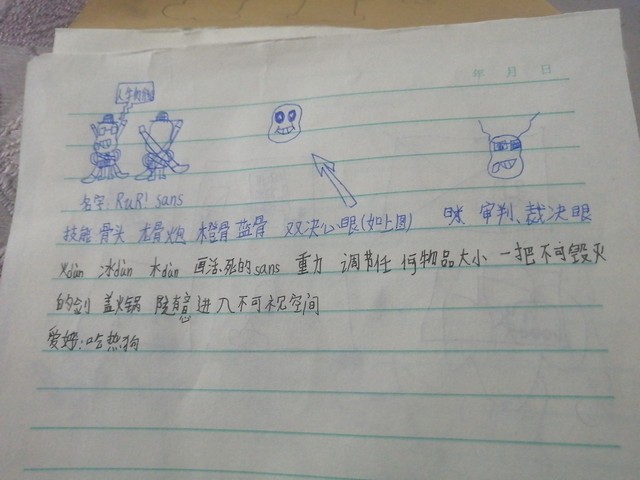 年 月 日
名字: RuR! sans
技能 骨头 龙骨炮 橙骨 蓝骨 双决心眼(如上图) 审判、裁决眼
火dùn 冰dùn 木dùn 画活死的sans 重力 调节任何物品大小 一把不可毁灭
的剑 盖火锅 随意进入不可视空间
爱好:吃热狗